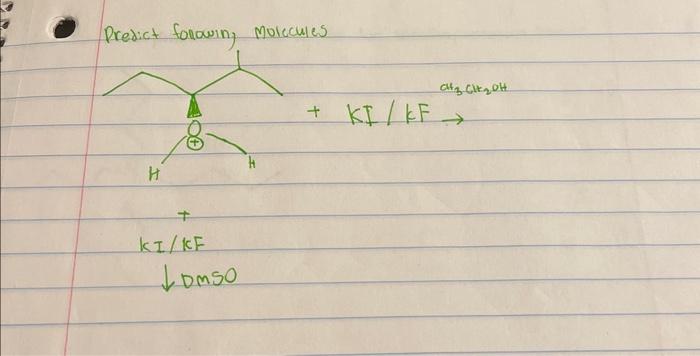 Predict following Molecules
CH3CH2OH
+ KI / KF →
O
⊕
H H
+
KI/KF
↓ DMSO